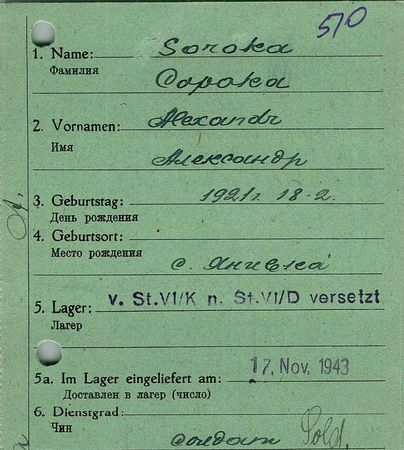 510
1. Name: Soroka
Фамилия
Сорока
2. Vornamen: Alexandr
Имя
Александр
3. Geburtstag: 1921 г. 18-2.
День рождения
4. Geburtsort:
Место рождения
с. Янивка
5. Lager: v. St.VI/K n. St.VI/D versetzt
Лагер
5a. Im Lager eingeliefert am: 17. Nov. 1943
Доставлен в лагер (число)
6. Dienstgrad:
Чин
солдат Sold.